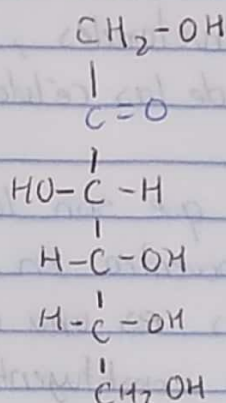 CH₂-OH
|
C=O
|
HO-C-H
|
H-C-OH
|
H-C-OH
|
CH₂ OH